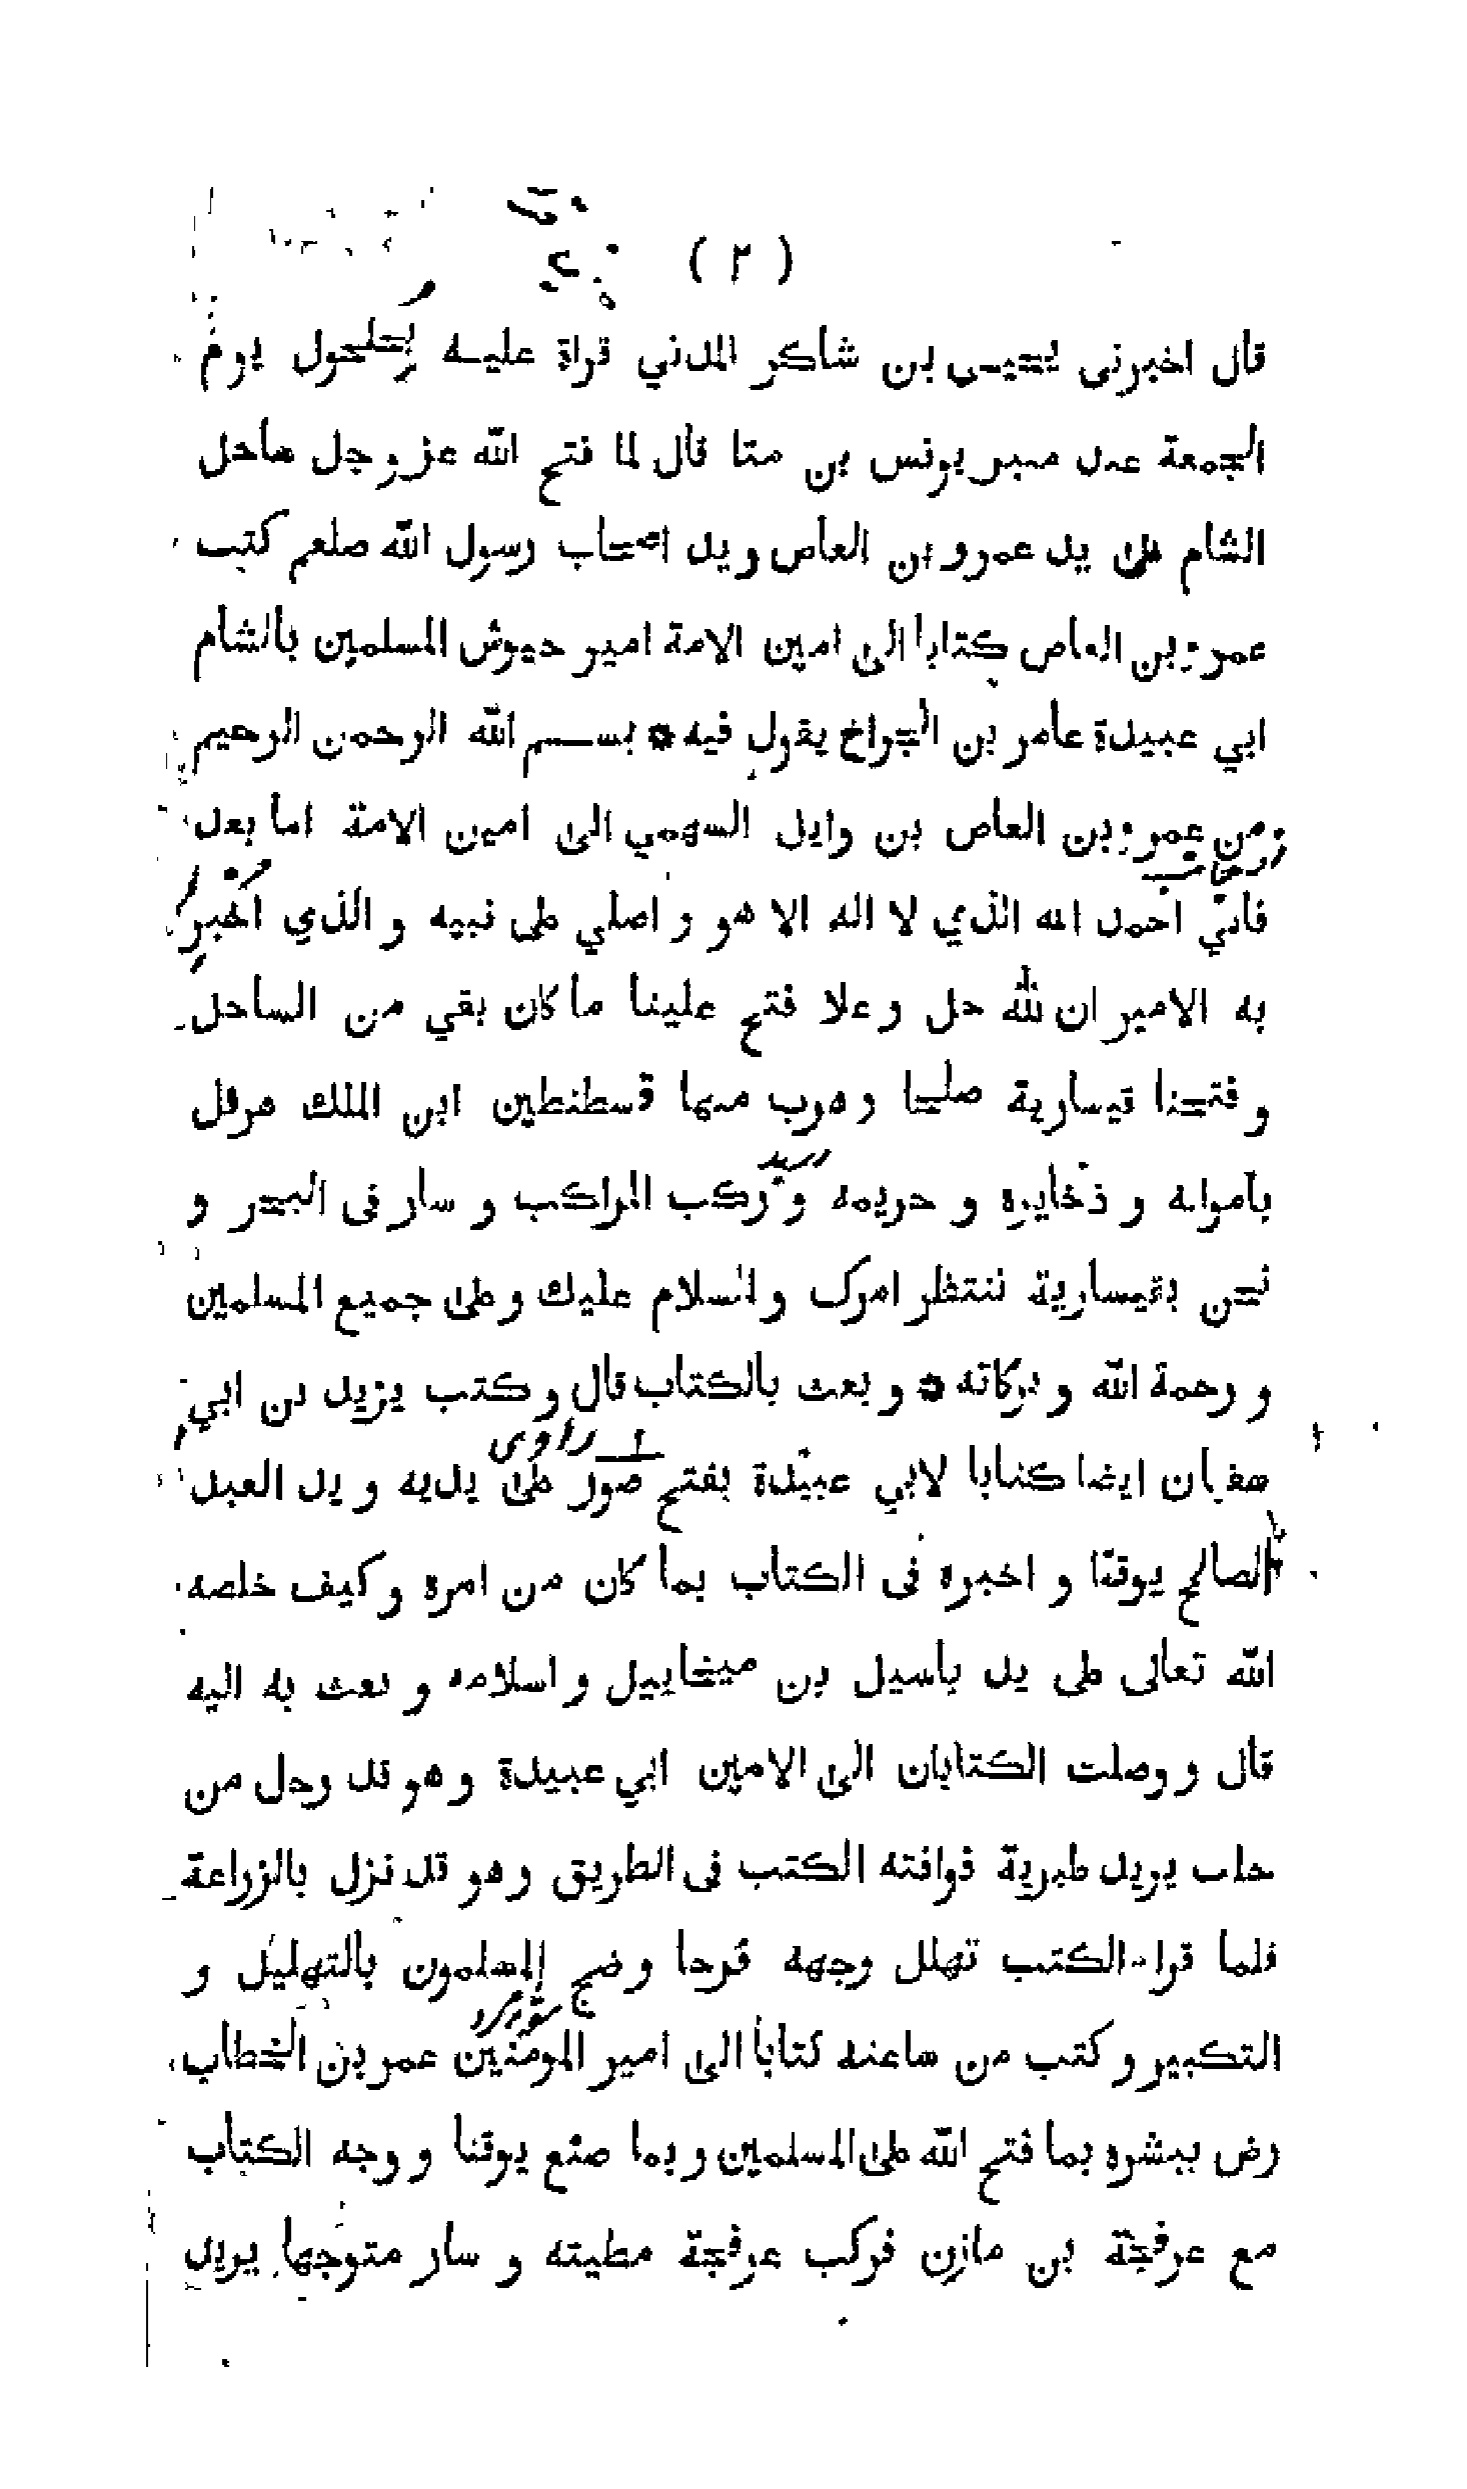 ( ٢ )
قال اخبرنى يحيى بن شاكر المدني قراة عليه بحلحول يوم
الجمعة عند منبر يونس بن متا قال لما فتح الله عز و جل ساحل
الشام على يد عمرو بن العاص و يد اصحاب رسول الله صلعم كتب
عمرو بن العاص كتابا الى امين الامة امير جيوش المسلمين بالشام
ابي عبيدة عامر بن الجراح يقول فيه * بسم الله الرحمن الرحيم
من عمرو بن العاص بن وايل السهمي الى امين الامة اما بعد
فاني احمد الله الذي لا اله الا هو و اصلي على نبيه و الذي اخبر
به الامير ان لله جل و علا فتح علينا ما كان بقي من الساحل
و فتحنا قيسارية صلحا و هرب منها قسطنطين ابن الملك هرقل
باموله و ذخايره و حريمه و ركب المراكب و سار فى البحر و
نحن بقيسارية ننتظر امرك و السلام عليك و على جميع المسلمين
و رحمة الله و بركاته * و بعث بالكتاب قال و كتب يزيد بن ابي
سفيان ايضا كتابا لابي عبيدة بفتح صور على يديه و يد العبد
الصالح يوقنا و اخبره فى الكتاب بما كان من امره و كيف خلصه
الله تعالى على يد باسيل بن ميخاييل و اسلامه و بعث به اليه
قال و وصلت الكتابان الى الامين ابي عبيدة و هو قد رحل من
حلب يريد طبرية فوافته الكتب فى الطريق و هو قد نزل بالزراعة
فلما قرا الكتب تهلل وجهه فرحا و ضج المسلمون بالتهليل و
التكبير و كتب من ساعته كتابا الى امير المومنين عمر بن الخطاب
رض يبشره بما فتح الله على المسلمين و بما صنع يوقنا و وجه الكتاب
مع عرفجة بن مازن فركب عرفجة مطيته و سار متوجها يريد